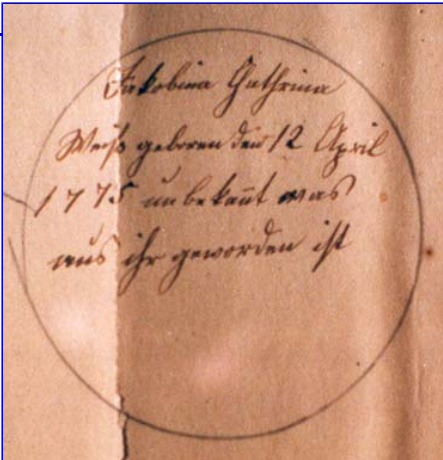 Jakobina Cathrina
Weiß geboren den 12 April
1775 unbekant was
aus ihr geworden ist